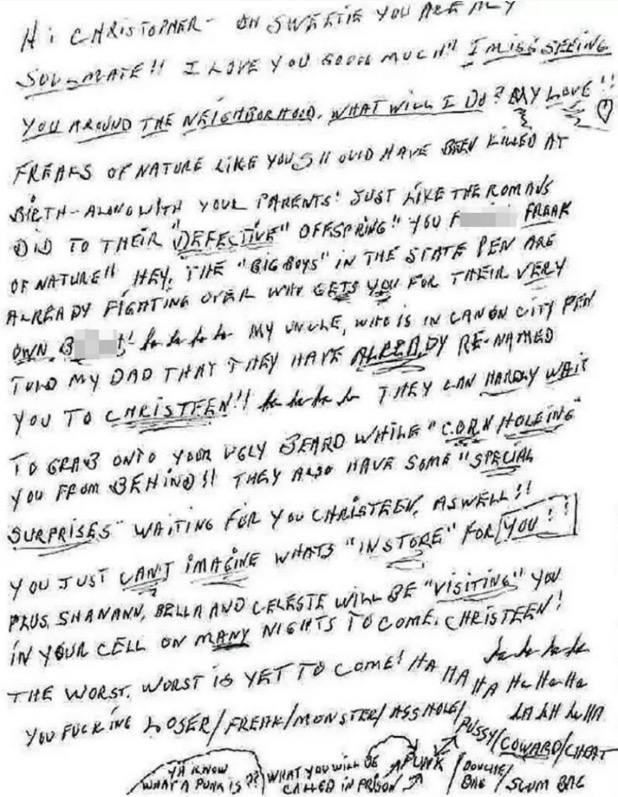 Hi CHRISTOPHER - OH SWEETIE YOU ARE MY
SOULMATE!! I LOVE YOU SOOOO MUCH!! I MISS SEEING
YOU AROUND THE NEIGHBORHOOD. WHAT WILL I DO? MY LOVE!!
FREAKS OF NATURE LIKE YOU SHOULD HAVE BEEN KILLED AT
BIRTH - ALONG WITH YOUR PARENTS! JUST LIKE THE ROMANS
DID TO THEIR "DEFECTIVE" OFFSPRING!! YOU F FREAK
OF NATURE!! HEY, THE "BIG BOYS" IN THE STATE PEN ARE
ALREADY FIGHTING OVER WHO GETS YOU FOR THEIR VERY
OWN B ! ha ha ha ha MY UNCLE, WHO IS IN CANON CITY PEN
TOLD MY DAD THAT THEY HAVE ALREADY RE-NAMED
YOU TO CHRISTEEN!! ha ha ha ha THEY CAN HARDLY WAIT
TO GRAB ONTO YOUR UGLY BEARD WHILE "CORN HOLEING"
YOU FROM BEHIND!! THEY ALSO HAVE SOME "SPECIAL
SURPRISES" WAITING FOR YOU CHRISTEEN, ASWELL!!
YOU JUST CAN'T IMAGINE WHATS "INSTORE" FOR YOU!!
PLUS, SHANANN, BELLA AND CELESTE WILL BE "VISITING" YOU
IN YOUR CELL ON MANY NIGHTS TO COME, CHRISTEEN!
ha ha ha ha
THE WORST, WORST IS YET TO COME! HA HA HA Ha Ha Ha
YOU FUCKING LOSER/FREAK/MONSTER/ASSHOLE/
PUSSY/COWARD/CHEAT
YA KNOW WHAT YOU WILL BE A PUNK / DOUCHE/
WHAT A PUNK IS?? CALLED IN PRISON BAG /SCUM BAG